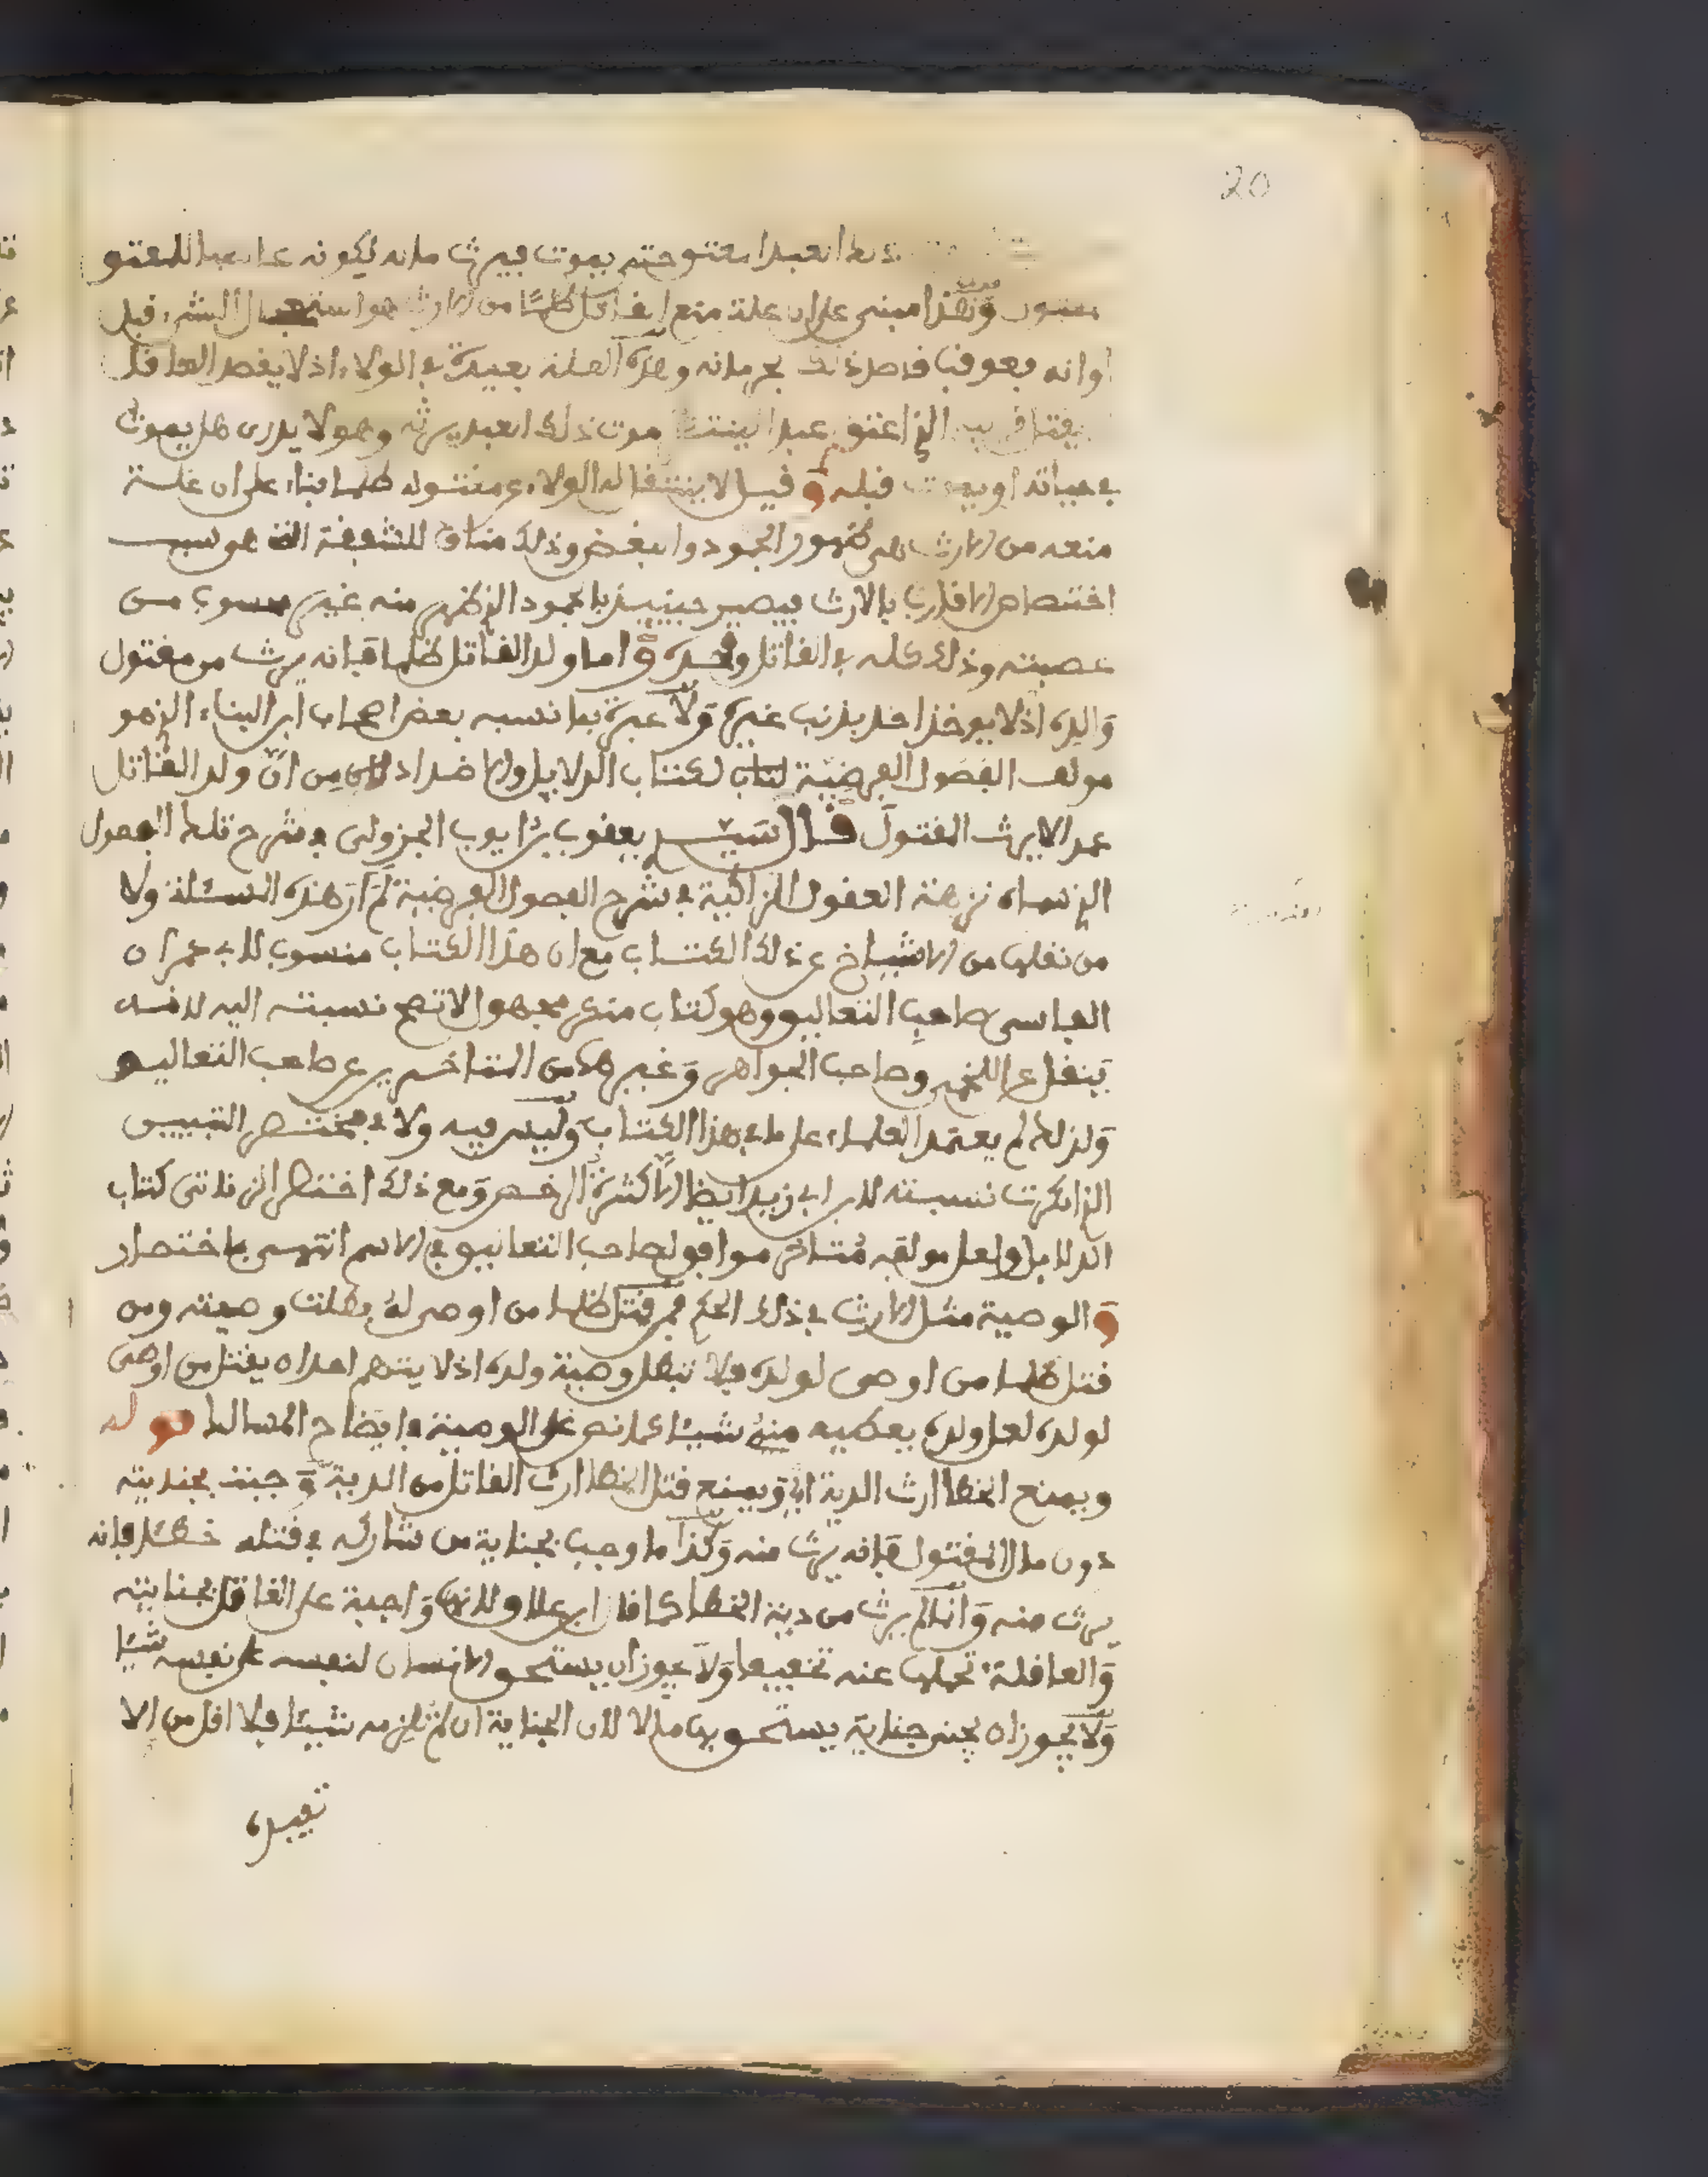 20
ذلك العبد المعتق حتى يموت فيرث ماله لكونه عاصبا للمعتق
وهذا مبني على ان علة منع القاتل ظلما من الارث هو استعجال الشيء قبل
اوانه فعوقب بحرمانه وهذه العلة بعيدة في الولاء اذ لا يقصد العاقل
الذي اعتق عبدا موت ذلك العبد يرثه وهو لا يدري هل يموت
في حياته او يموت قبله وقيل لا ينتقل له الولاء عن مقتوله ظلما بناء على ان علة
منعه من الارث هي ظهور الجمود والبغض وذلك مناف للشفقة التي هو سبب
اختصاص الاقارب بالارث فيصير حينيذ بالجمود الذي ظهر منه غير محسوب من
عصبته وذلك كله في القاتل وحده واما ولد القاتل ظلما فانه يرث من مقتول
والده اذ لا يوخذ احد بذنب غيره ولا عبرة بما نسبه بعض اصحاب ابن البناء الذي هو
مولف الفصول الفرضية لكتاب الدلايل والاضداد من ان ولد القاتل
عمدا لا يرث المقتول قال السيد يعقوب بن ايوب الجزولي في شرح تلك الفصول
الذي سماه نزهة العقول الزاكية في شرح الفصول الفرضية لم ار هذه المسئلة ولا
من نقلها من الاشياخ عن ذلك الكتاب مع ان هذا الكتاب منسوب لابي عمران
الفاسي صاحب التعاليق وهو كتاب منكر مجهول لا تصح نسبته اليه لانه
ينقل عن اللخمي وصاحب الجواهر وغيرهما من المتاخرين عن صاحب التعاليق
ولذلك لم يعتمد العلماء على ما في هذا الكتاب وليس فيه ولا في مختصر التبيين
الذي انكرت نسبته لابن ابي زيد ايضا الا كثرة الرخص ومع ذلك اختصر الزناتي كتاب
الدلايل ولعل مولفه متاخر موافق لصاحب التعاليق في الاسم انتهى باختصار
والوصية مثل الارث في ذلك الحكم فمن قتل ظلما من اوصى له بطلت وصيته ومن
قتل ظلما من اوصى لولده فلا تبطل وصية ولده اذ لا يتهم احد ان يقتل من اوصى
لولده لعل ولده يعطيه منه شيئا كما نص على الوصية في ايضاح المسالك قوله
ويمنع الخطا ارث الدية اي ويمنع قتل الخطا ارث القاتل من الدية وجبت بجنايته
دون مال المقتول فانه يرث منه وكذا ما وجب بجناية من شاركه في قتله خطئا فانه
يرث منه وانما لم يرث من دية الخطا كما قال ابن علاو لانها واجبة على القاتل بجنايته
والعاقلة تحملها عنه تخفيفا ولا يجوز ان يستحق الانسان لنفسه على نفسه شيئا
ولا يجوز ان يجني جناية يستحق بها مالا لان الجناية ان لم تلزمه شيئا فلا اقل من الا
تفيده